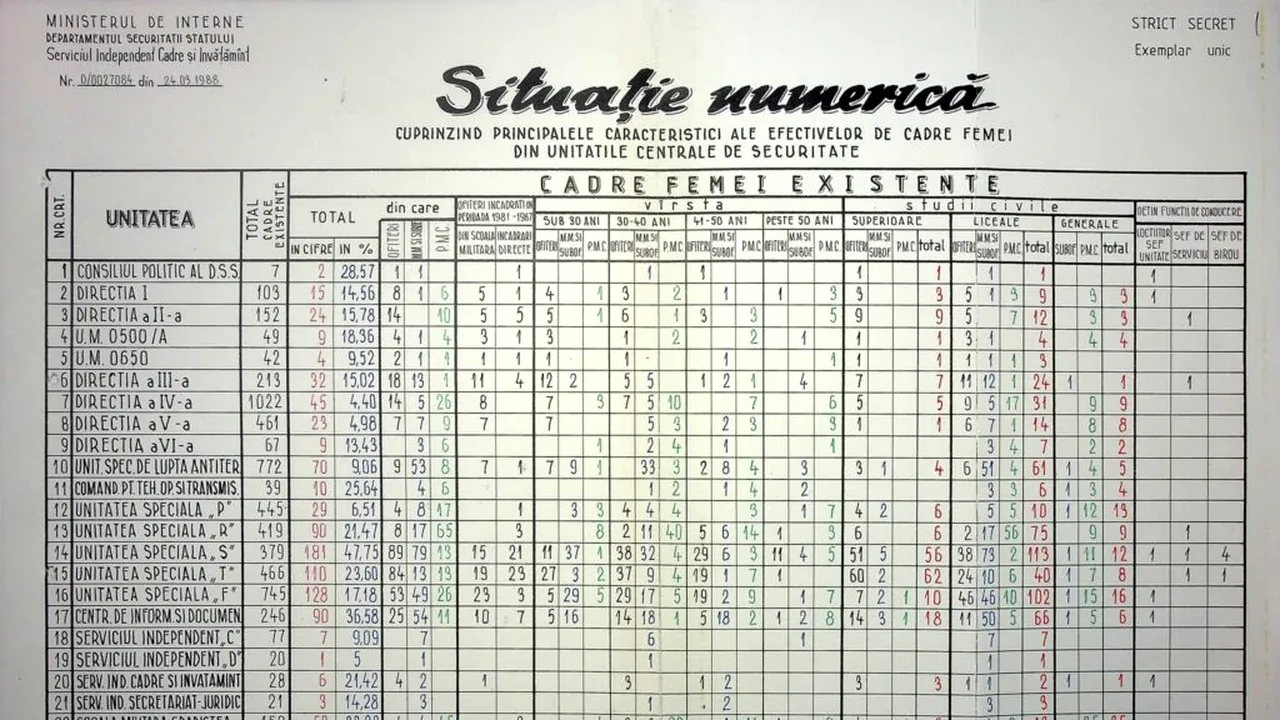 MINISTERUL DE INTERNE
DEPARTAMENTUL SECURITATII STATULUI
Serviciul Independent Cadre si Invățămînt
Nr. 0/0027084 din 24.03.1988
STRICT SECRET
Exemplar unic
Situație numerică
CUPRINZIND PRINCIPALELE CARACTERISTICI ALE EFECTIVELOR DE CADRE FEMEI
DIN UNITATILE CENTRALE DE SECURITATE
CADRE FEMEI EXISTENTE
NR. CRT. UNITATEA TOTAL CADRE EXISTENTE TOTAL din care OFITERI INCADRATI IN PERIOADA 1981-1987 vîrsta studii civile DETIN FUNCTII DE CONDUCERE
SUB 30 ANI 30-40 ANI 41-50 ANI PESTE 50 ANI SUPERIOARE LICEALE GENERALE
IN CIFRE IN % OFITERI M.M. SI SUBOF. P.M.C. DIN SCOALA MILITARA INCADRARI DIRECTE OFITERI M.M. SI SUBOF. P.M.C. OFITERI M.M. SI SUBOF. P.M.C. OFITERI M.M. SI SUBOF. P.M.C. OFITERI M.M. SI SUBOF. P.M.C. OFITERI M.M. SI SUBOF. P.M.C. total OFITERI M.M. SI SUBOF. P.M.C. total SUBOF. P.M.C. total LOCTIITOR SEF UNITATE SEF DE SERVICIU SEF DE BIROU
1 CONSILIUL POLITIC AL D.S.S. 7 2 28,57 1 1 1 1 1 1 1 1 1 1
2 DIRECTIA I 103 15 14,56 8 1 6 5 1 4 1 3 2 1 1 3 3 3 5 1 3 9 3 3 1
3 DIRECTIA a II-a 152 24 15,78 14 10 5 5 5 1 6 1 3 3 5 9 9 5 7 12 3 3 1
4 U.M. 0500/A 49 9 18,36 4 1 4 3 1 3 1 2 2 1 1 1 3 1 4 4 4
5 U.M. 0650 42 4 9,52 2 1 1 1 1 1 1 1 1 1 1 1 1 1 3
6 DIRECTIA a III-a 213 32 15,02 18 13 1 11 4 12 2 5 5 1 2 1 4 7 7 11 12 1 24 1 1 1
7 DIRECTIA a IV-a 1022 45 4,40 14 5 26 8 7 3 7 5 10 7 6 5 5 9 5 17 31 9 9
8 DIRECTIA a V-a 461 23 4,98 7 7 9 7 7 5 3 2 3 3 1 1 6 7 1 14 8 8
9 DIRECTIA a VI-a 67 9 13,43 3 6 1 2 4 1 1 3 4 7 2 2
10 UNIT. SPEC. DE LUPTA ANTITER. 772 70 9,06 9 53 8 7 1 7 9 1 33 3 2 8 4 3 3 1 4 6 51 4 61 1 4 5
11 COMAND. PT. TEH. OP. SI TRANSMIS. 39 10 25,64 4 6 1 2 1 4 2 3 3 6 1 3 4
12 UNITATEA SPECIALA „P" 445 29 6,51 4 8 17 1 3 3 4 4 4 3 1 7 4 2 6 5 5 10 1 12 13
13 UNITATEA SPECIALA „R" 419 90 21,47 8 17 65 3 8 2 11 40 5 6 14 1 3 6 6 2 17 56 75 9 9 1
14 UNITATEA SPECIALA „S" 379 181 47,75 89 79 13 15 21 11 37 1 38 32 4 29 6 3 11 4 5 51 5 56 38 73 2 113 1 11 12 1 1 4
15 UNITATEA SPECIALA „T" 466 110 23,60 84 13 13 19 23 27 3 2 37 9 4 19 1 7 1 60 2 62 24 10 6 40 1 7 8 1 1
16 UNITATEA SPECIALA „F" 745 128 17,18 53 49 26 23 3 5 29 5 29 17 5 19 2 9 1 7 7 2 1 10 46 46 10 102 1 15 16 1
17 CENTR. DE INFORM. SI DOCUMEN. 246 90 36,58 25 54 11 10 7 5 16 14 18 1 5 18 2 1 2 8 14 3 1 18 11 50 5 66 1 5 6 1
18 SERVICIUL INDEPENDENT „C" 77 7 9,09 7 6 1 7 7
19 SERVICIUL INDEPENDENT „D" 20 1 5 1 1 1 1
20 SERV. IND. CADRE SI INVATAMINT 28 6 21,42 4 2 1 3 1 2 3 3 1 1 2 1 1 1
21 SERV. IND. SECRETARIAT-JURIDIC 21 3 14,28 3 1 2 3 3